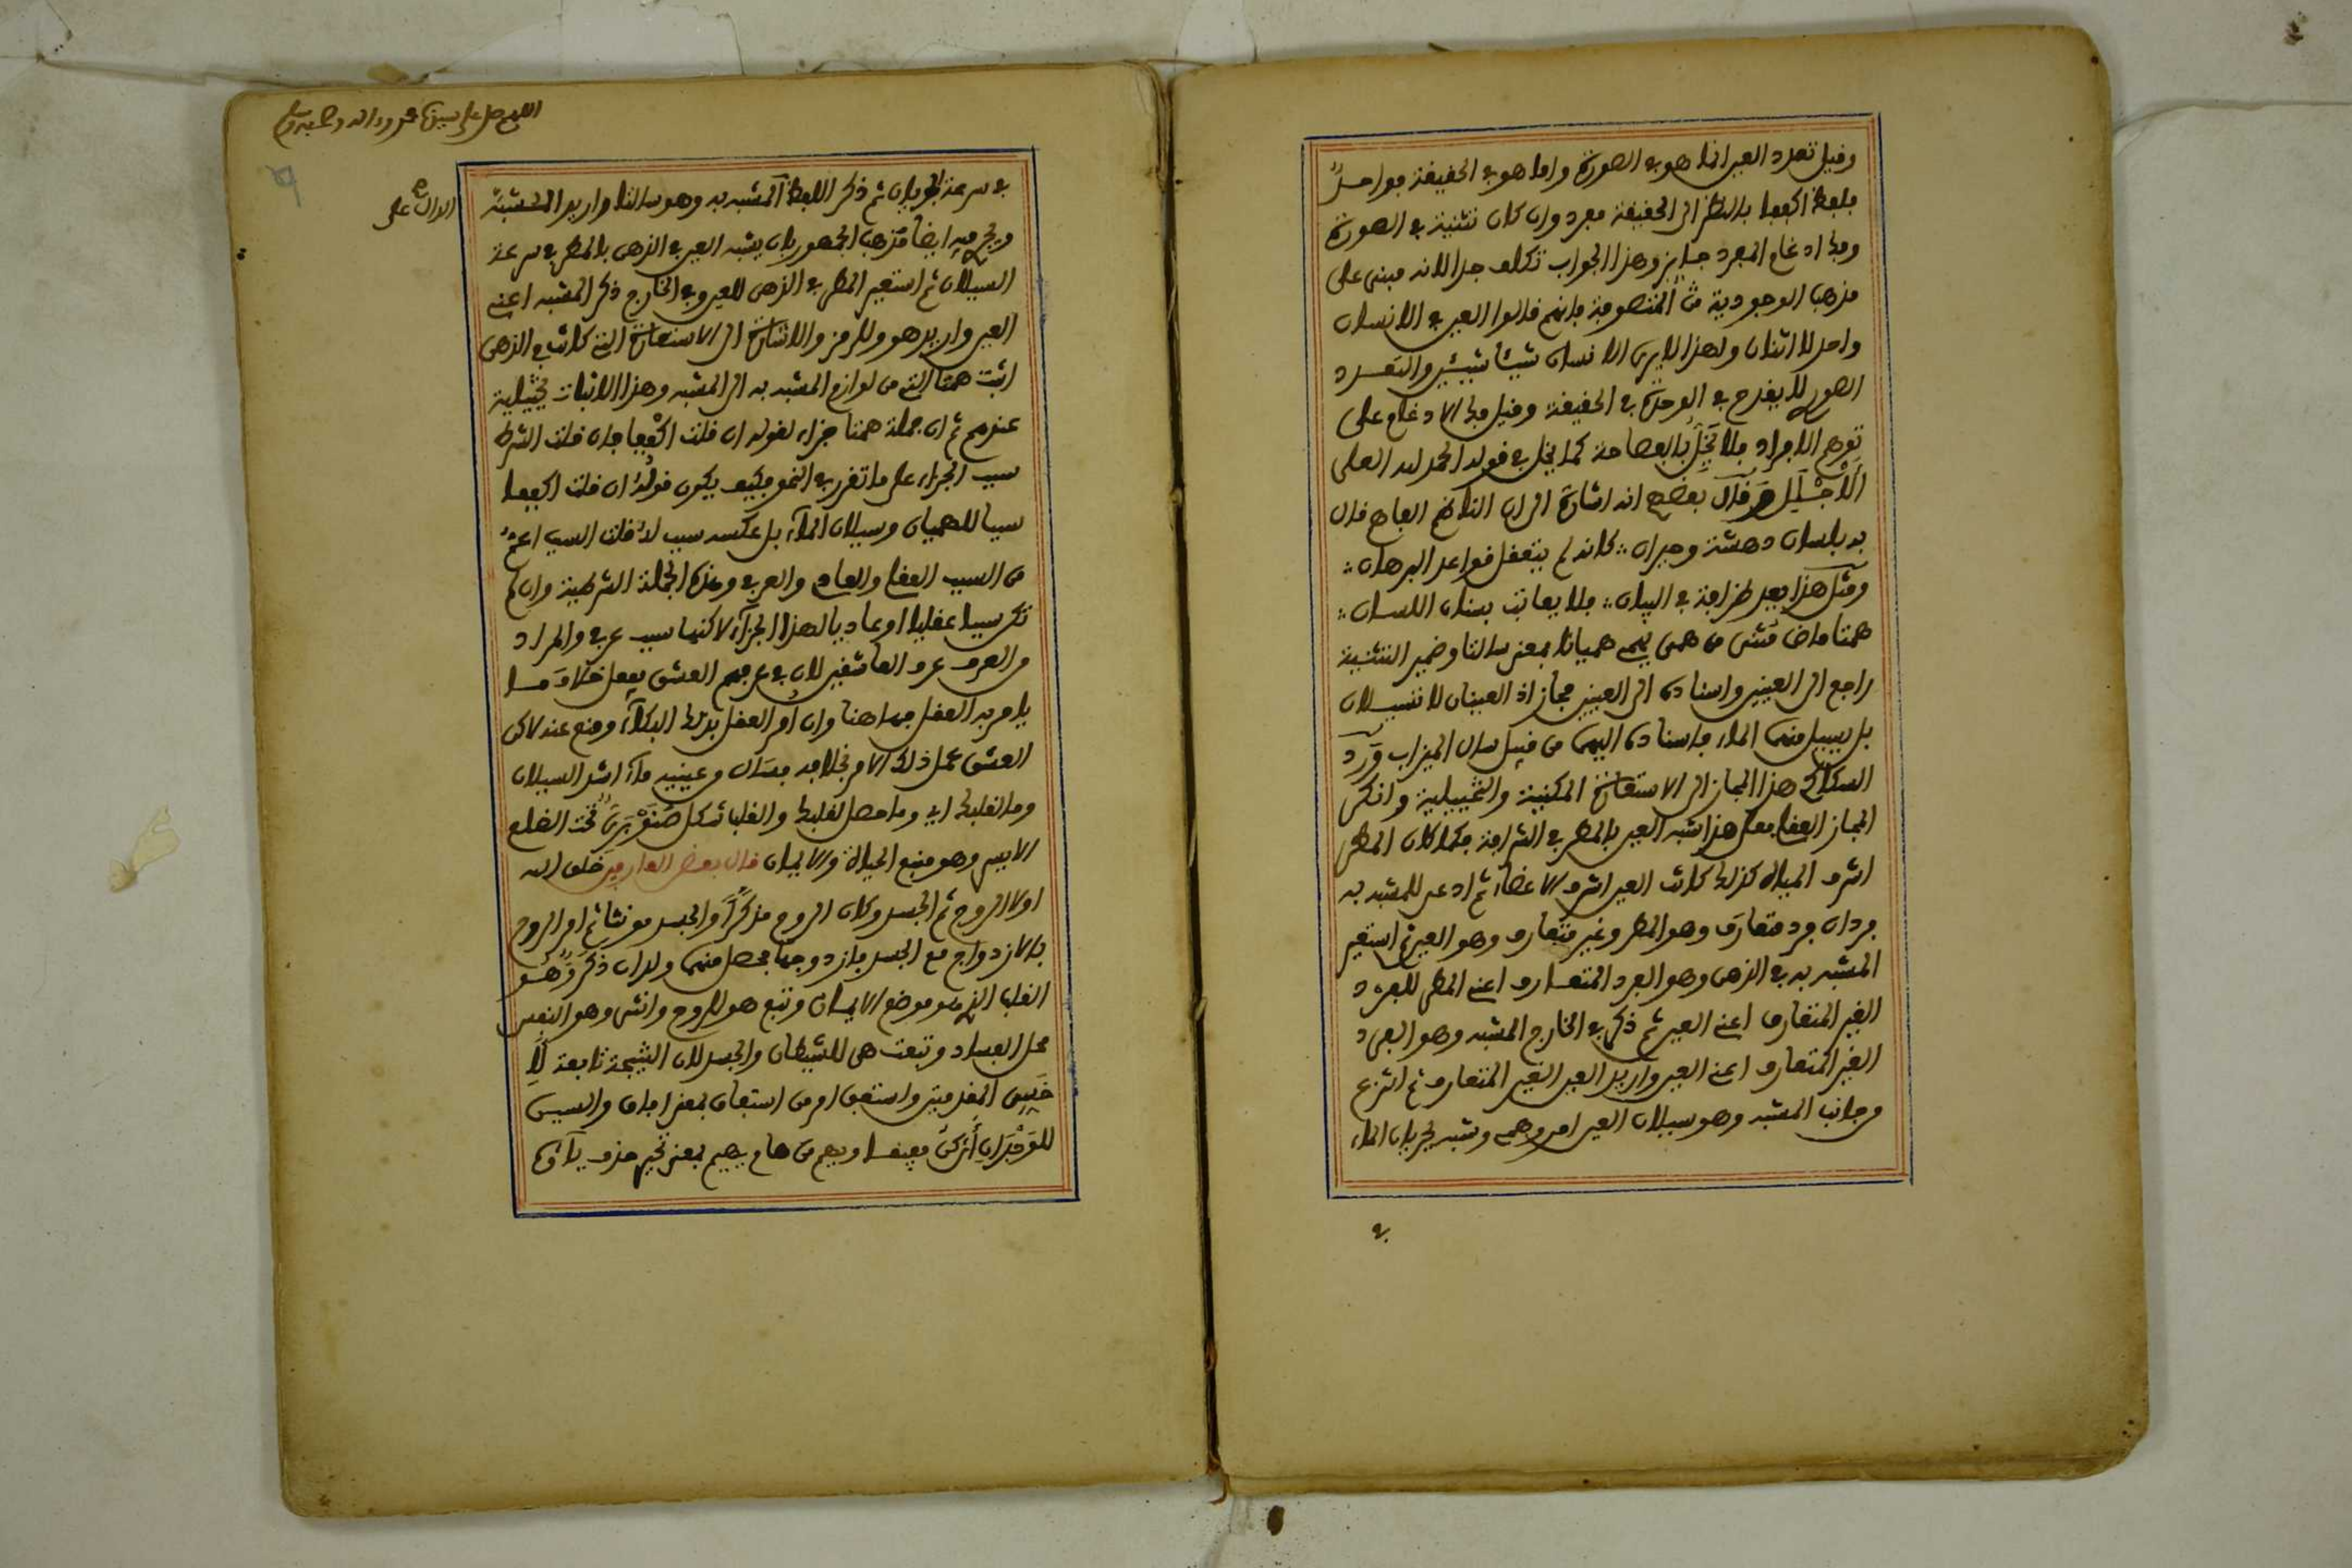 وقيل تعدد العين انما هو في الصورة واما هو في الحقيقة فواحد
فلفظ اكففا بالنظر الى الحقيقة مفرد وان كان تثنية في الصورة
وفك ادغام المفرد جايز وهذا الجواب تكلف جدا لانه مبني على
مذهب الوجودية من المتصوفة فانهم قالوا العين في الانسان
واحد لا اثنان ولهذا لا يرى الانسان شيئا شيئين والتعدد
الصوري لا يقدح في الوحدة في الحقيقة وقيل فك الادغام على
توهم الافراد فلا يخل بالفصاحة كما يخل في قوله الحمد لله العلى
الاجلل وقال بعضهم انه اشارة الى ان الناظم الفاهم قال
به بلسان دهشة وحيران كانه لم يتعقل قواعد البرهان
ومثل هذا يعد طرافة في البيان فلا يعاتب بسنان اللسان
همتا ماض مثنى من همى يهمي هميانا بمعنى سالتا وضمير التثنية
راجع الى العينين واسناده الى العينين مجاز اذ العينان لا تسيلان
بل يسيل منهما الماء فاسناده اليهما من قبيل سال الميزاب ورد
السكاكي هذا المجاز الى الاستعارة المكنية والتخييلية وانكر
المجاز العقلي فعلى هذا شبه العين بالمطر في الشرافة فكما كان المطر
اشرف المياه كذلك كانت العين اشرف الاعضاء ثم ادعى للمشبه به
فردان فرد متعارف وهو المطر وغير متعارف وهو العين ثم استعير
المشبه به في الذهن وهو الفرد المتعارف اعني المطر للفرد
الغير المتعارف اعني العين ثم ذكر في الخارج المشبه وهو الفرد
الغير المتعارف اعني العين واريد العين الغير المتعارف ثم انتزع
من جانب المشبه وهو سيلان العين امر وهمي وشبه بجريان الماء
في
اللهم صل على سيدنا محمد وءاله وصحبه وسلم
في سرعة الجريان ثم ذكر اللفظ المشبه به وهو سالتا واريد المشبه
ويجري فيه ايضا مذهب الجمهور بان يشبه العين في الذهن بالمطر في سرعة
السيلان ثم استعير المطر في الذهن للعين وفي الخارج ذكر المشبه اعني
العين واريد هو وللرمز والاشارة الى الاستعارة التي كانت في الذهن
اثبت همتا التي من لوازم المشبه به الى المشبه وهذا الاثبات تخييلية
عندهم ثم ان جملة همتا جزاء لقوله ان قلت اكففا فان قلت الشرط
سبب الجزاء على ما تقرر في النحو فكيف يكون قوله ان قلت اكففا
سببا للهميان وسيلان الماء بل عكسه سبب له قلت السبب اعم
من السبب العقلي والعادي والعرفي وهذه الجملة الشرطية وان لم
تكن سببا عقليا او عاديا لهذا الجزاء لاكنها سبب عرفي والمراد
من العرف عرف العاشقين لان في عرفهم العشق يفعل خلاف ما
يامر به العقل فها هنا وان امر العقل بترك البكاء ومنع عنه لاكن
العشق عمل ذلك الامر بخلافه فسال من عينيه ماء اشد السيلان
وما لقلبك اي وما حصل لقلبك والقلب شكل صنوبري تحت الضلع
الايسر وهو منبع الحياة والايمان قال بعض العارفين خلق الله
اولا الروح ثم الجسد وكان الروح مذكرا والجسد مونثا ثم امر الروح
بالازدواج مع الجسد فازدوجتا فحصل منهما ولدان ذكر وهو
القلب الذي هو موضع الايمان وتبع هو للروح وانثى وهو النفس
محل الفساد وتبعت هي للشيطان والجسد لان النتيجة تابعة لا
خس المقدمتين واستفق امر من استفاق بمعنى افاق والسين
للوجدان